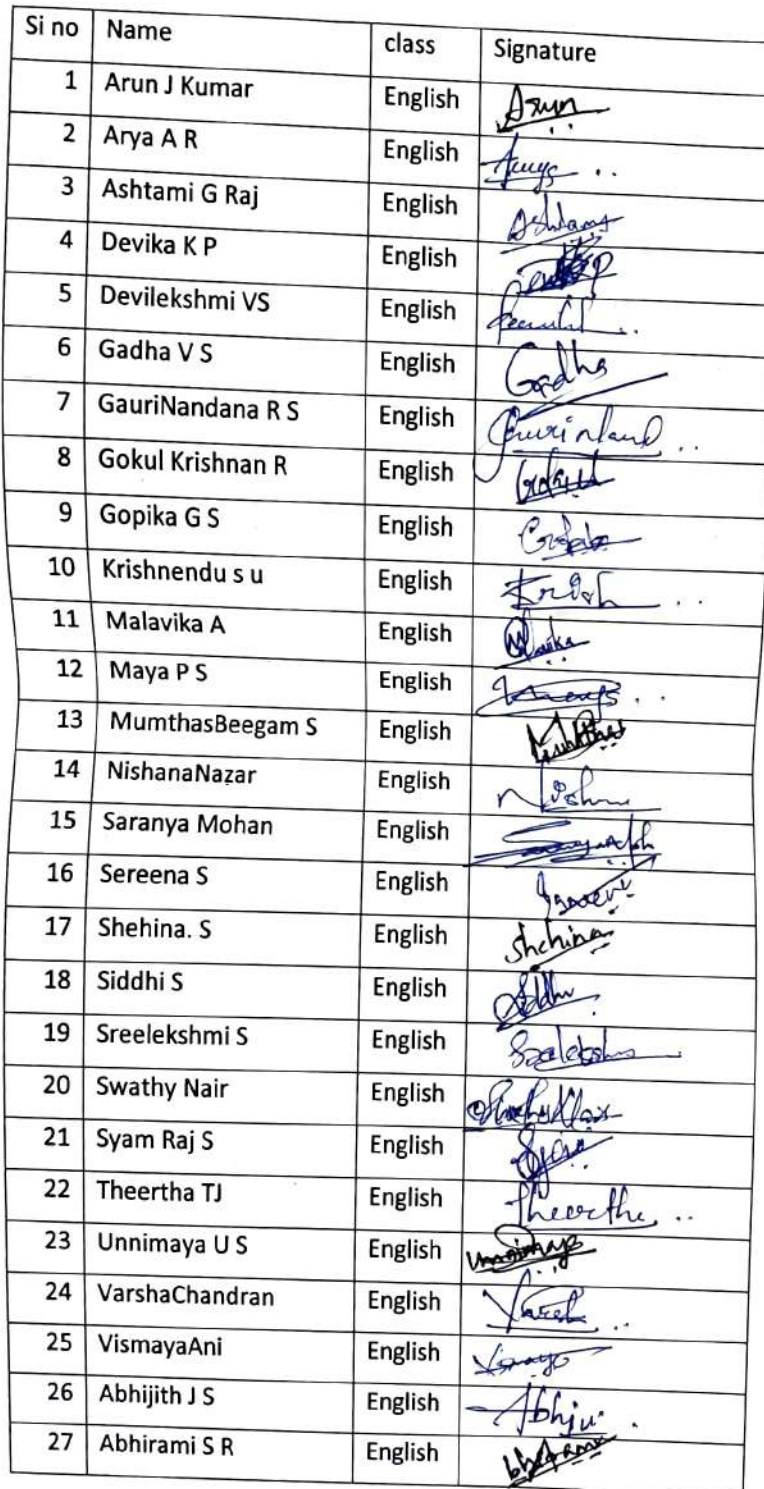 Si no Name class Signature
1 Arun J Kumar English Arun
2 Arya A R English
3 Ashtami G Raj English Ashtami
4 Devika K P English
5 Devilekshmi VS English
6 Gadha V S English Gadha
7 GauriNandana R S English
8 Gokul Krishnan R English
9 Gopika G S English
10 Krishnendu s u English Krish
11 Malavika A English
12 Maya P S English
13 MumthasBeegam S English
14 NishanaNazar English
15 Saranya Mohan English
16 Sereena S English
17 Shehina. S English Shehina
18 Siddhi S English
19 Sreelekshmi S English
20 Swathy Nair English
21 Syam Raj S English
22 Theertha TJ English Theertha
23 Unnimaya U S English Unnimaya
24 VarshaChandran English
25 VismayaAni English
26 Abhijith J S English
27 Abhirami S R English